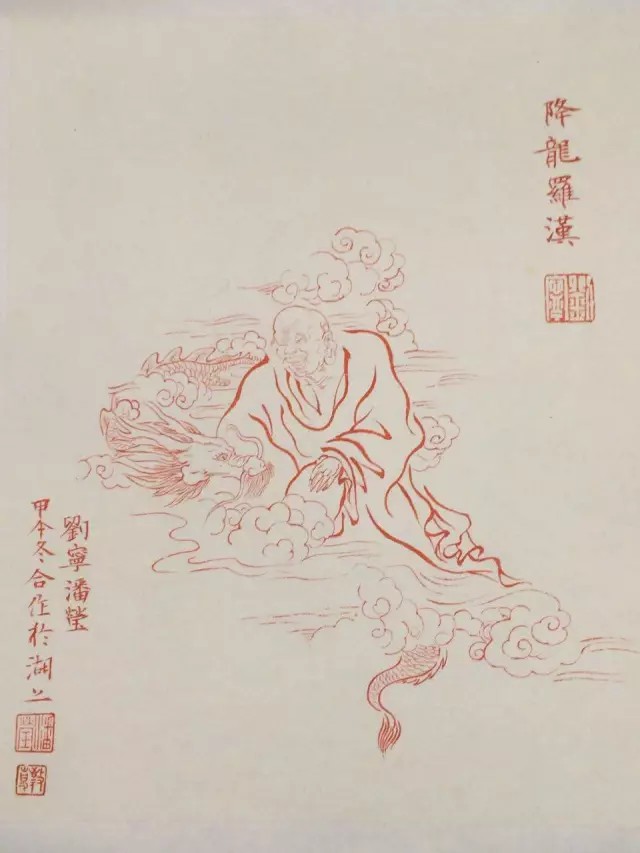 降龍羅漢
劉寧
劉寧潘瑩
甲午冬合作於湖上
潘瑩